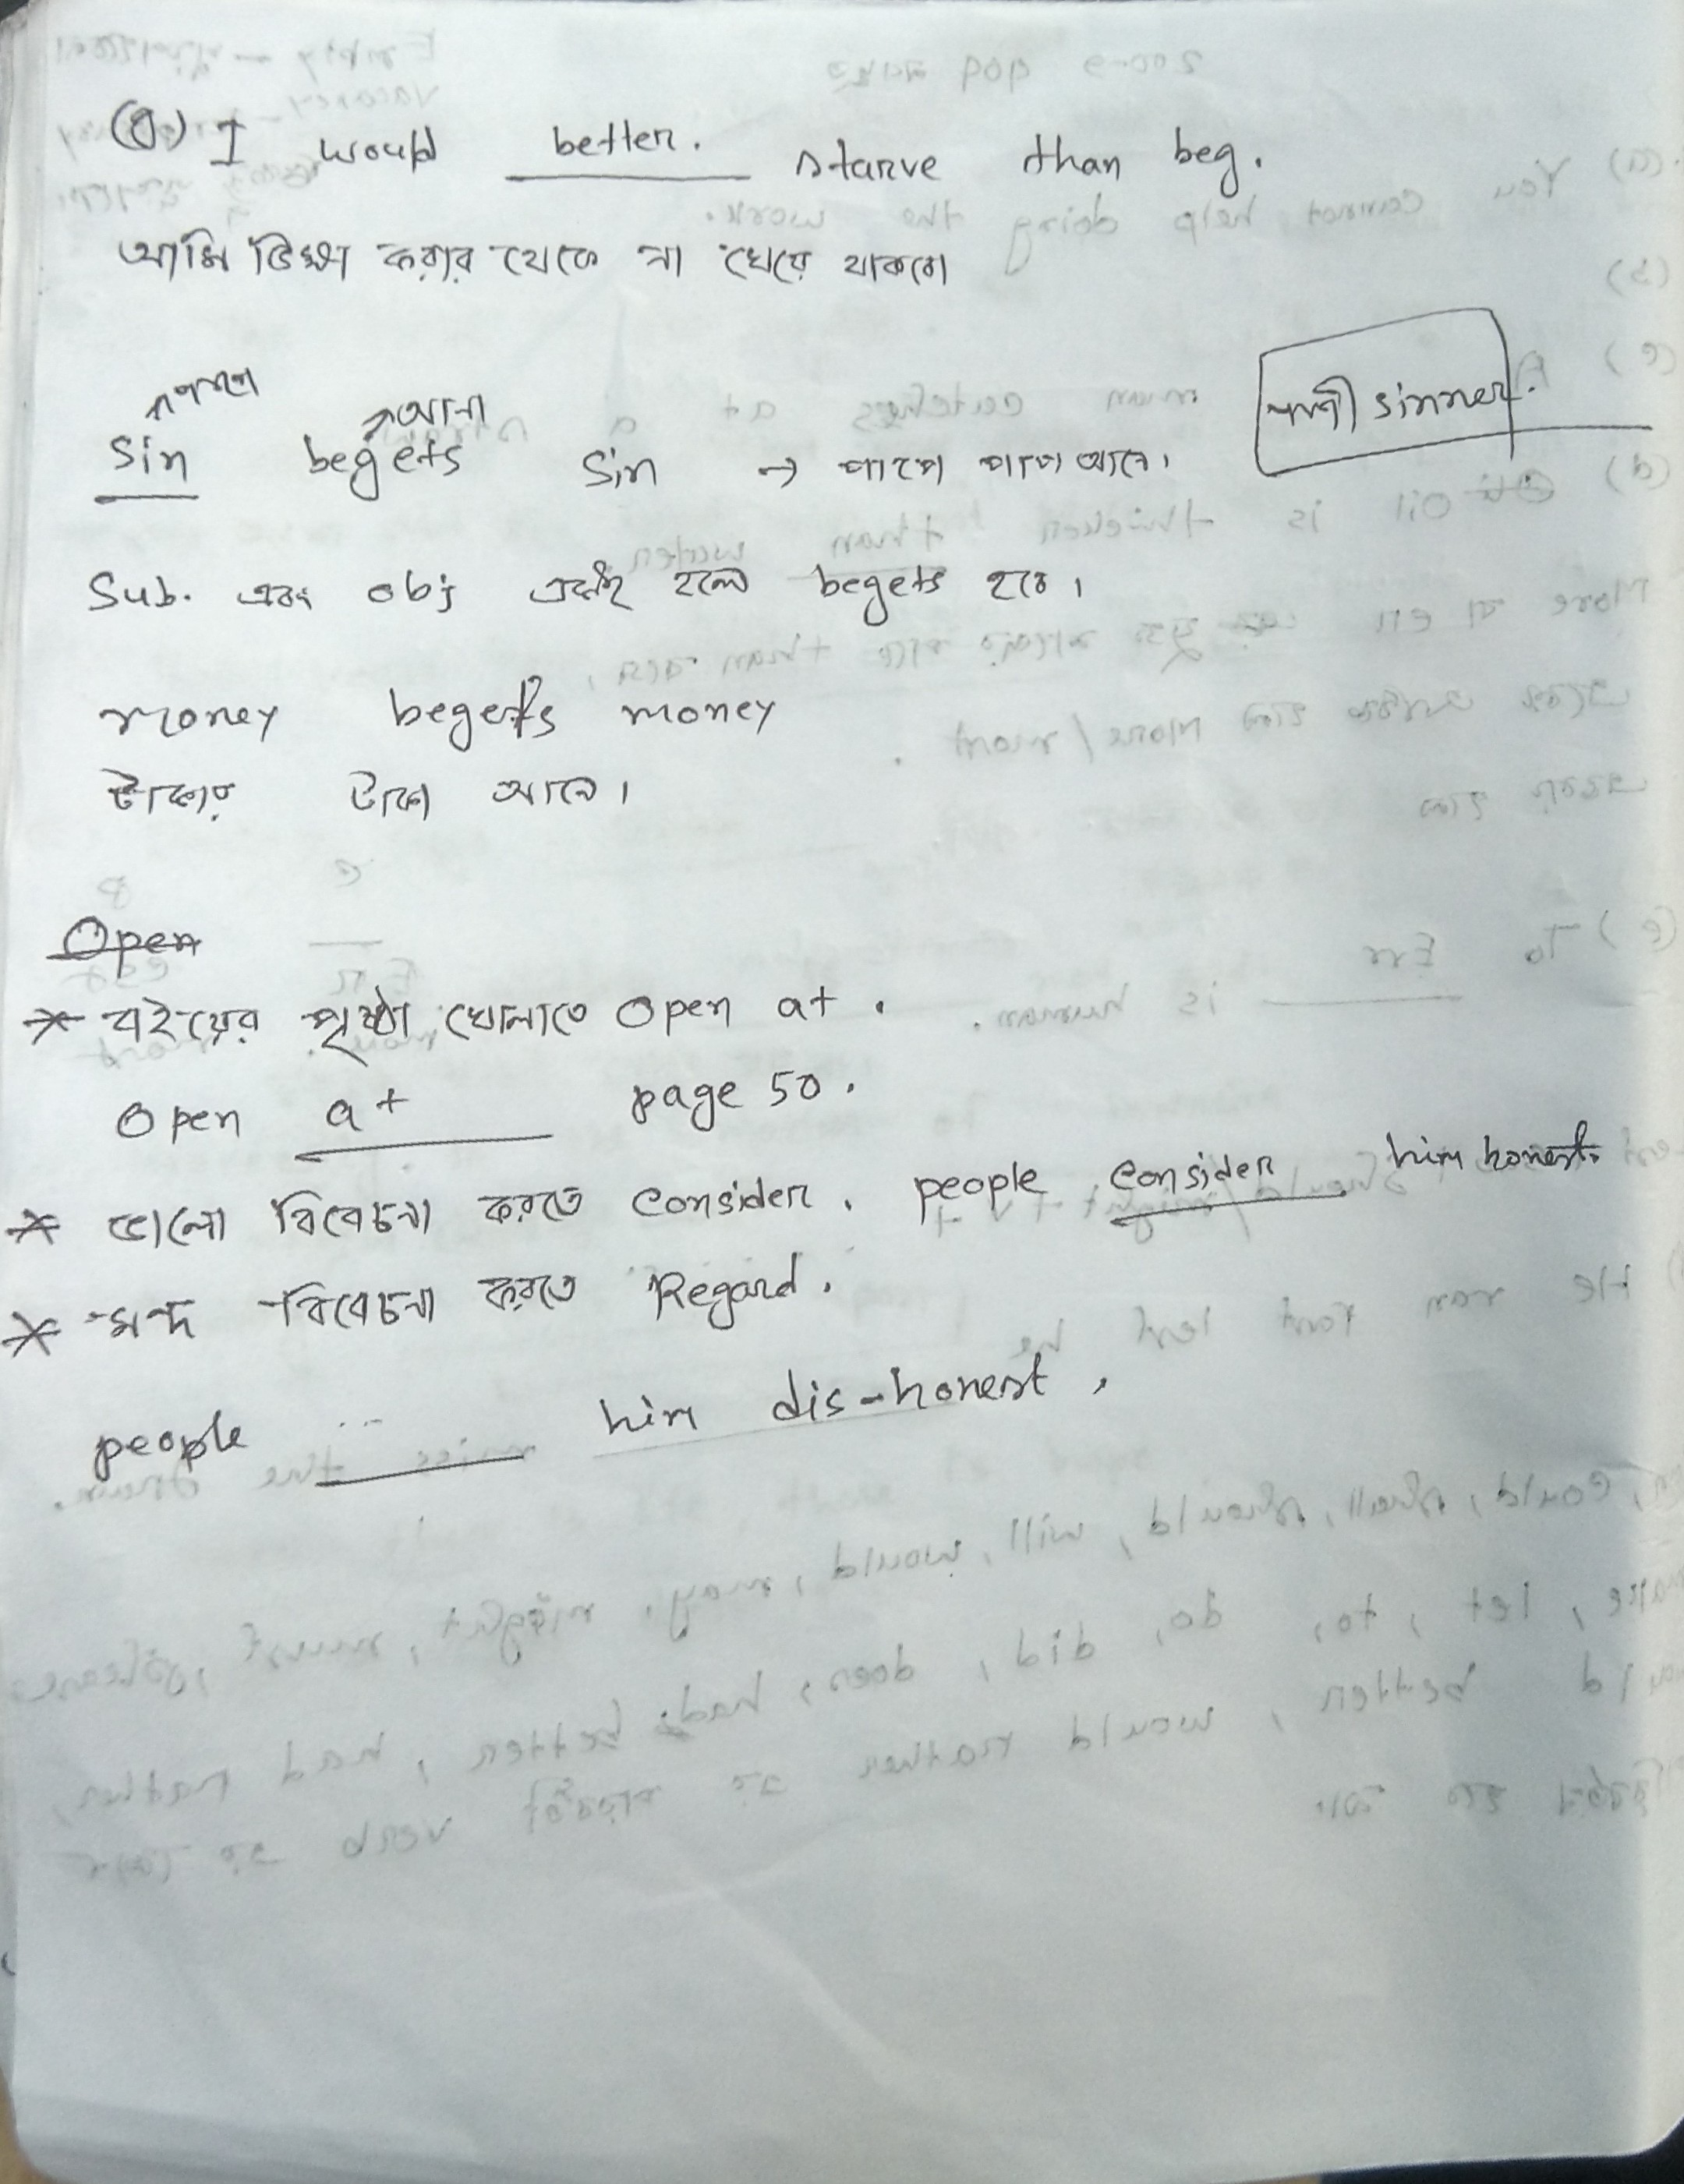 (g) I would better. starve than beg.
আমি ভিক্ষা করার থেকে না খেয়ে থাকবো
sin begets sin → পাপে পাপ আনে।
পাপী sinner.
Sub. এবং obj একই হলে begets হবে।
money begets money
টাকায় টাকা আনে।
Open
* বইয়ের পৃষ্ঠা খোলাতে open at.
open at page 50.
* ভালো বিবেচনা করতে consider. people consider him honest.
* মন্দ বিবেচনা করতে Regard.
people him dis-honest.